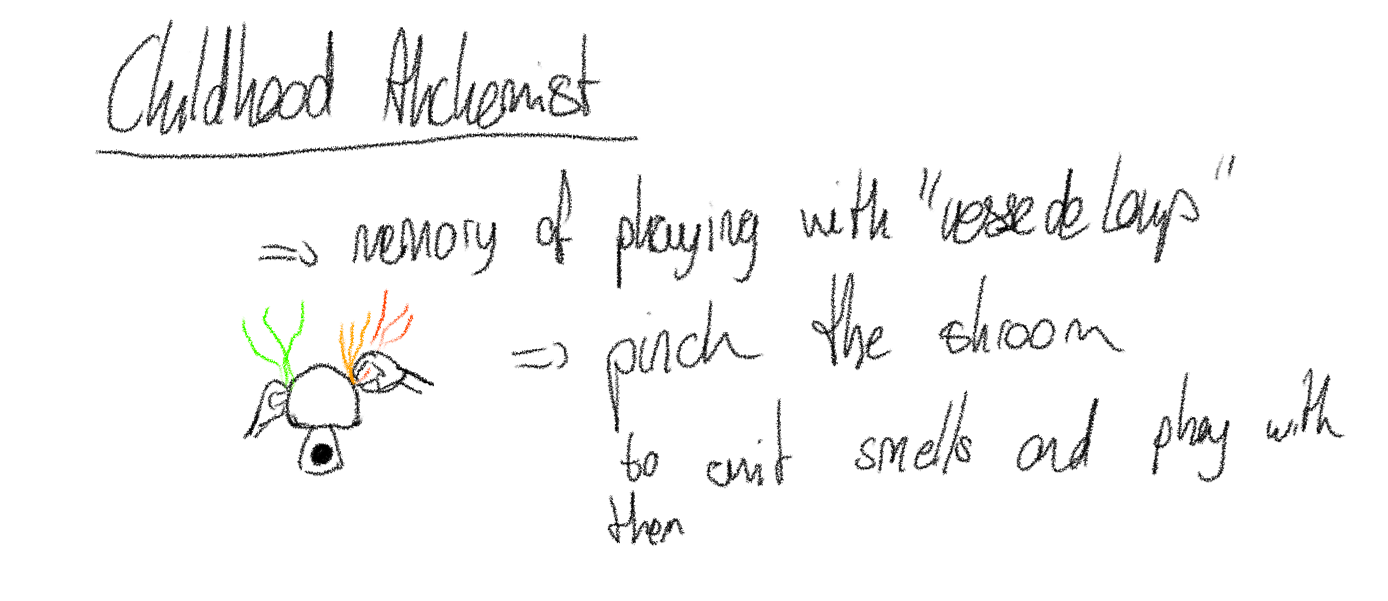 Childhood Alchemist
=> memory of playing with "vesse de loups"
=> pinch the shroom
to emit smells and play with
them